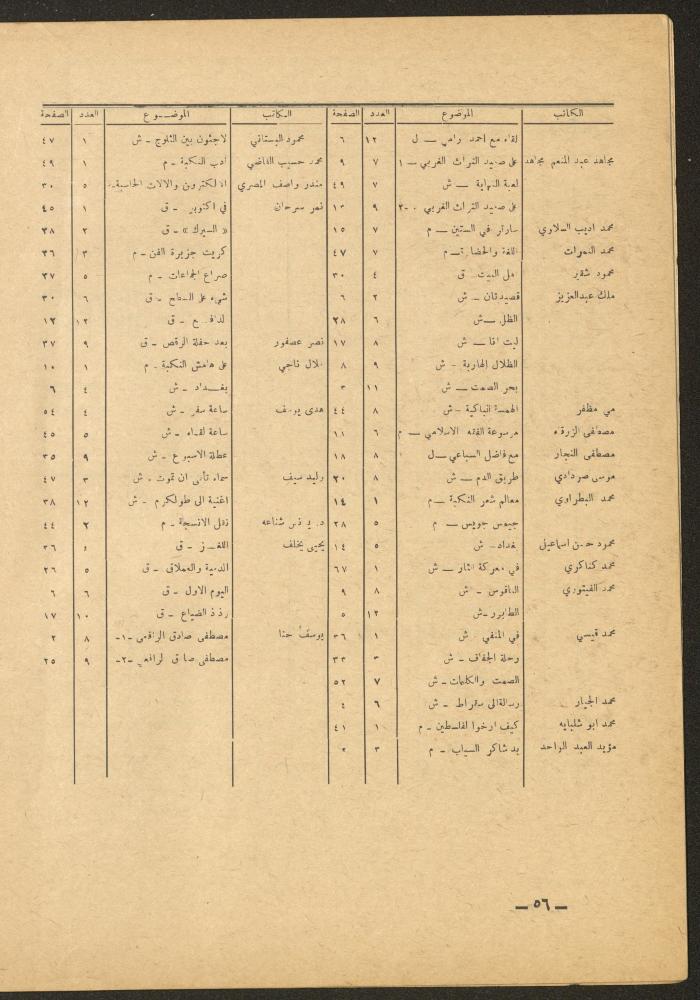 الكاتب الموضوع العدد الصفحة
لقاء مع احمد رامي ــ ل ١٢ ٦
مجاهد عبد المنعم مجاهد على صعيد التراث الغربي ــ ١ ٧ ٩
لعبة النهاية ــ ش ٧ ٤٩
على صعيد التراث الغربي ٩
محمد اديب السلاوي سارتر في الستين ــ م ٧ ١٥
محمد اللغة والحضارة ــ م ٧ ٤٧
محمود شقير اهل البيت ق ٤ ٣٠
ملك عبدالعزيز قصيدتان ــ ش ٢ ٦
الظل ــ ش ٦ ٢٨
ليت انا ــ ش ٨ ١٧
الظلال الهاربة ــ ش ٩ ٨
بحر الصمت ــ ش ١١ ٣
مي مظفر الهمسة الباكية ــ ش ٨ ٤٤
مصطفى الزرقاء موسوعة الفقه الاسلامي ــ م ٦ ١١
مصطفى النجار مع فاضل السباعي ــ ل ٨ ١٨
موسى صردادي طريق الدم ــ ش ٨ ٢٠
محمد البطراوي معالم شعر النكبة ــ م ١ ١٤
جيمس جويس ــ م ٥ ٢٨
محمود حسن اسماعيل بغداد ــ ش ٥ ١٤
محمد كناكري في معركة الثار ــ ش ١ ٦٧
محمد الفيتوري الناقوس ــ ش ٨ ٩
الطابور ــ ش ١٢ ٥
محمد قيسي في المنفى ش ١ ٣٦
رحلة الجفاف ــ ش ٣ ٣٣
الصمت والكلمات ــ ش ٧ ٥٢
محمد الجيار رسالة الى سقراط ــ ش ٦ ٤
محمد ابو شلبايه كيف ارخوا لفلسطين ــ م ١ ٤١
مؤيد العبد الواحد بدر شاكر السياب ــ م ٣ ٢
الكاتب الموضــوع العدد الصفحة
محمود البستاني لاجئون بين الثلوج ــ ش ١ ٤٧
محمد حسيب القاضي ادب النكبة ــ م ١ ٤٩
منذر واصف المصري الالكترون والالات الحاسبة ٥ ٣٠
نمر سرحان في اكتوبر ــ ق ١ ٤٥
« السيرك » ــ ق ٢ ٣٨
كريت جزيرة الفن ــ م ٣ ٣٦
صراع الجماعات ــ م ٥ ٢٧
شيء على السطح ــ ق ٦ ٣٠
ــ ق ١٢ ١٢
نصر عصفور بعد حفلة الرقص ــ ق ٩ ٣٧
ناجي على هامش النكبة ــ م ١ ١٠
بغــداد ــ ش ٤ ٦
هدى يوسف ساعة سفر ــ ش ٤ ٥٤
ساعة لقاء ــ ش ٥ ٤٥
عطلة الاسبوع ــ ش ٩ ٣٥
وليد سيف سماء تأبى ان تموت ــ ش ٣ ٤٧
اغنية الى طولكرم ــ ش ١٢ ٣٨
د. شناعه نقل الانسجة ــ م ٢ ٤٤
يحيى يخلف اللغــز ــ ق ٣٦
الدمية والعملاق ــ ق ٥ ٢٦
اليوم الاول ــ ق ٦ ٦
رذذ الضياع ــ ق ١٠ ١٧
يوسف حنا مصطفى صادق الرافعي ــ١ــ ٨ ٢
مصطفى صادق الرافعي ــ٢ــ ٩ ٢٥
ــ ٥٦ ــ